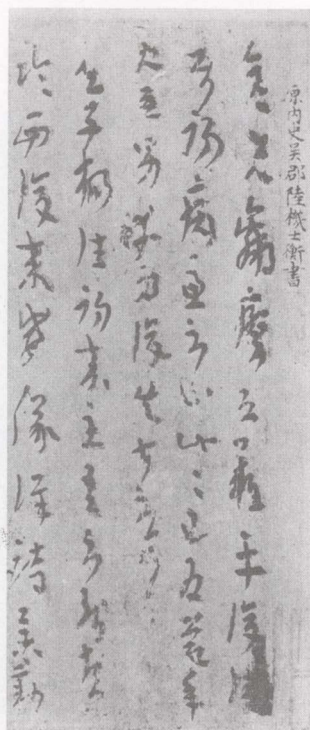 原内史吳郡陸機士衡書
彦先羸瘵恐難平復
初病慮不止此〻已為慶承
使唯男幸為復失前憂耳
子楊往初來主吾不能盡
臨西復來威儀詳跱舉動